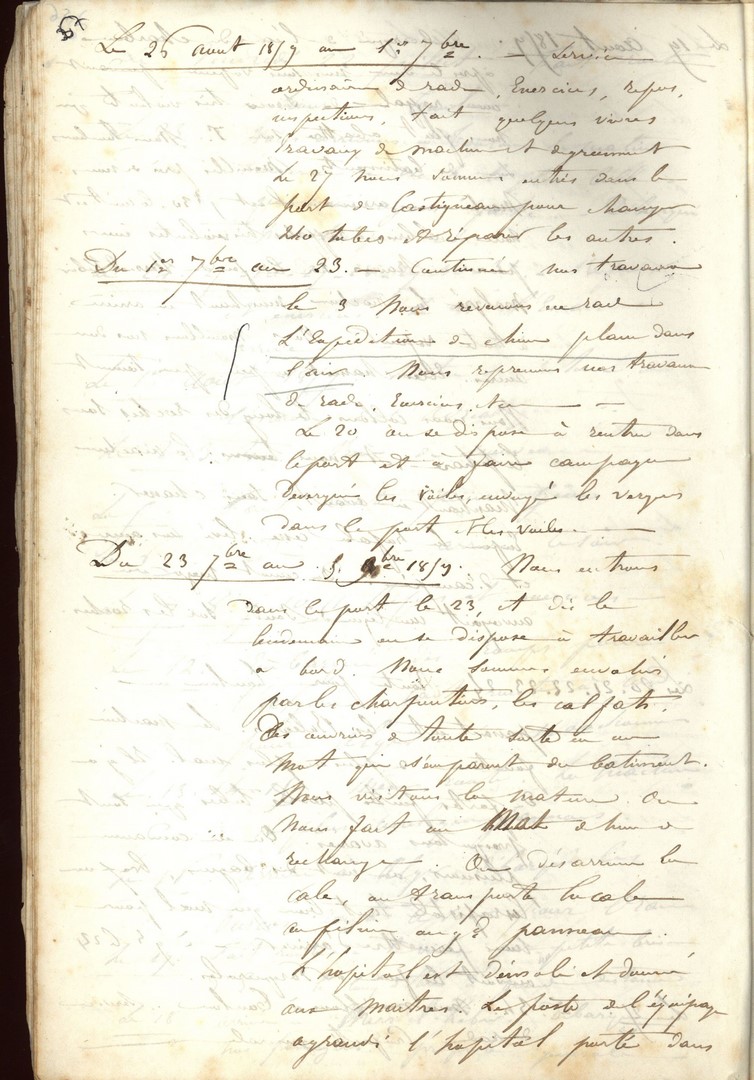 Le 26 aout 1859 au 1er 7bre. — Service
ordinaire de rade, Exercices, repos,
inspections, fait quelques vivres
travaux de machine et de gréement
Le 27 nous sommes entrés dans le
port de Castigneau pour changer
240 tubes et réparer les autres.
Du 1er 7bre au 23. — Continué nos travaux
le 3 Nous revenons en rade
L'Expédition de Chine plane dans
l'air Nous reprenons nos travaux
de rade. Exercices, &c —
Le 20 on se dispose à rentrer dans
le port et à faire campagne
Deverguè les voiles, envoyé les vergues
dans le port et les voiles —
Du 23 7bre au 9bre 1859. Nous entrons
dans le port le 23, et dès le
lendemain on se dispose à travailler
a bord. Nous sommes envahis
par les charpentiers, les calfats,
Des ouvriers de toute sorte en un
Mot qui s'emparent du batiment.
Nous visitons la mature. On
Nous fait un Mat de hune de
rechange. On désarrime la
cale, on transporte la cale
a filin au gd panneau.
L'hopital est démoli et donné
aux Maitres. Le poste de l'équipage
agrandi l'hopital porté dans